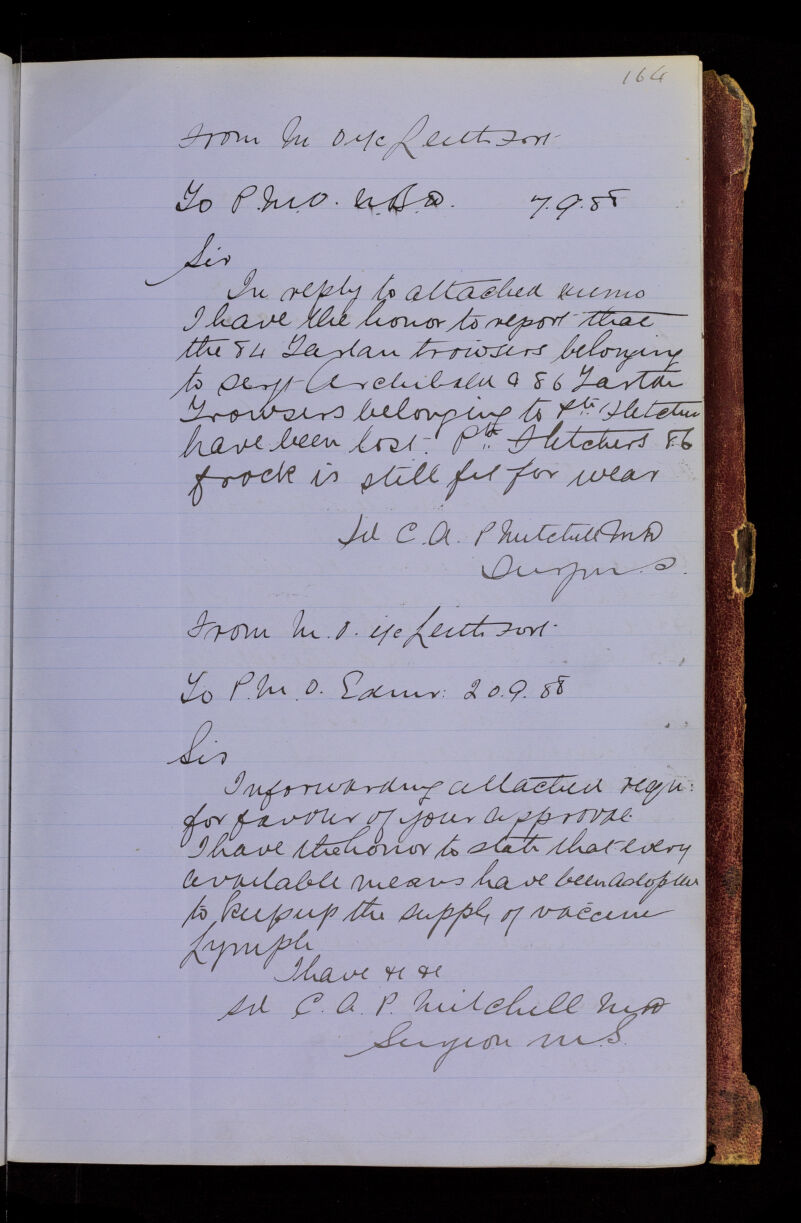 164
From M O i/c Leith Fort
To P.M.O. N.B.D. 7.9.88
Sir
In reply to attached memo
I have the honor to report that
the 84 Tartan trowsers belonging
to Sergt Archibald & 86 Tartan
Trowsers belonging to Pte Fletcher
have been lost. Pte Fletchers 86
frock is still fit for wear
Sd C. A. P Mitchell MD
Surgn. S.
From M. O. i/c Leith Fort
To P. M. O. Edinr: 20.9.88
Sir
In forwarding attached requ:
for favour of your approval
I have the honor to state that every
available means have been adopted
to keep up the supply of vaccine
Lymph
I have &c &c
Sd C. A. P. Mitchell MD
Surgeon M.S.